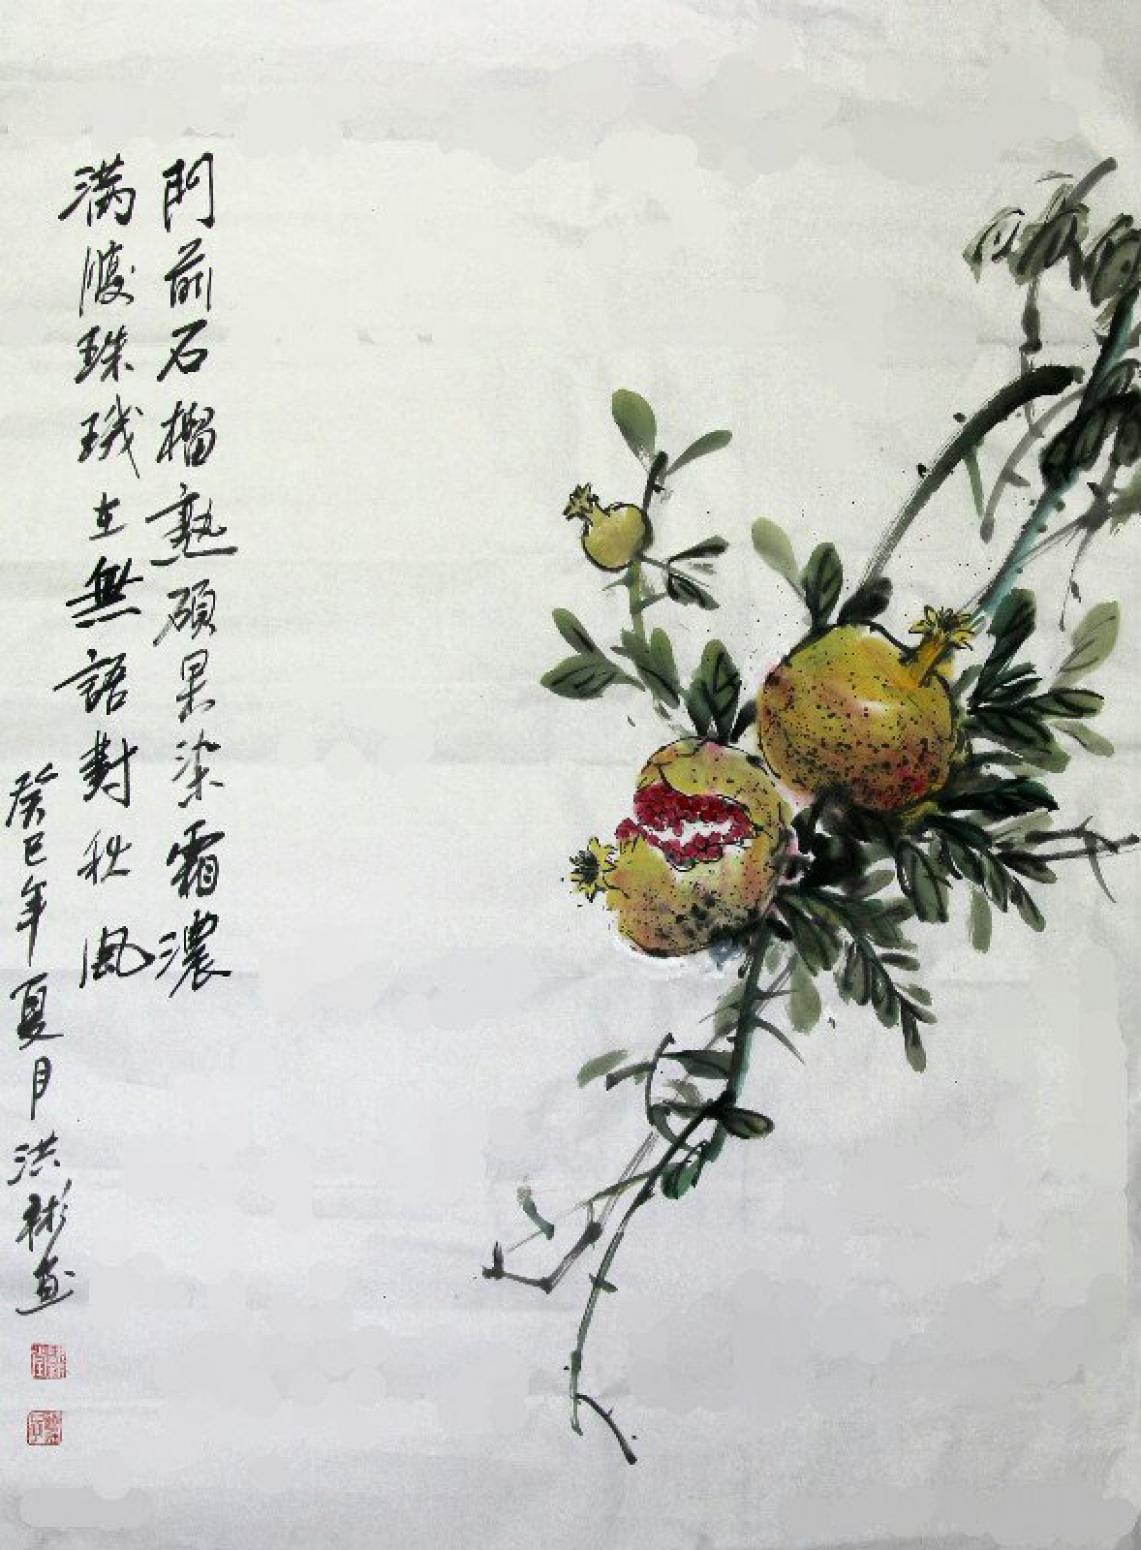 門前石榴熟碩果染霜濃
满腹珠玑在無語對秋風
癸巳年夏月洪彬画